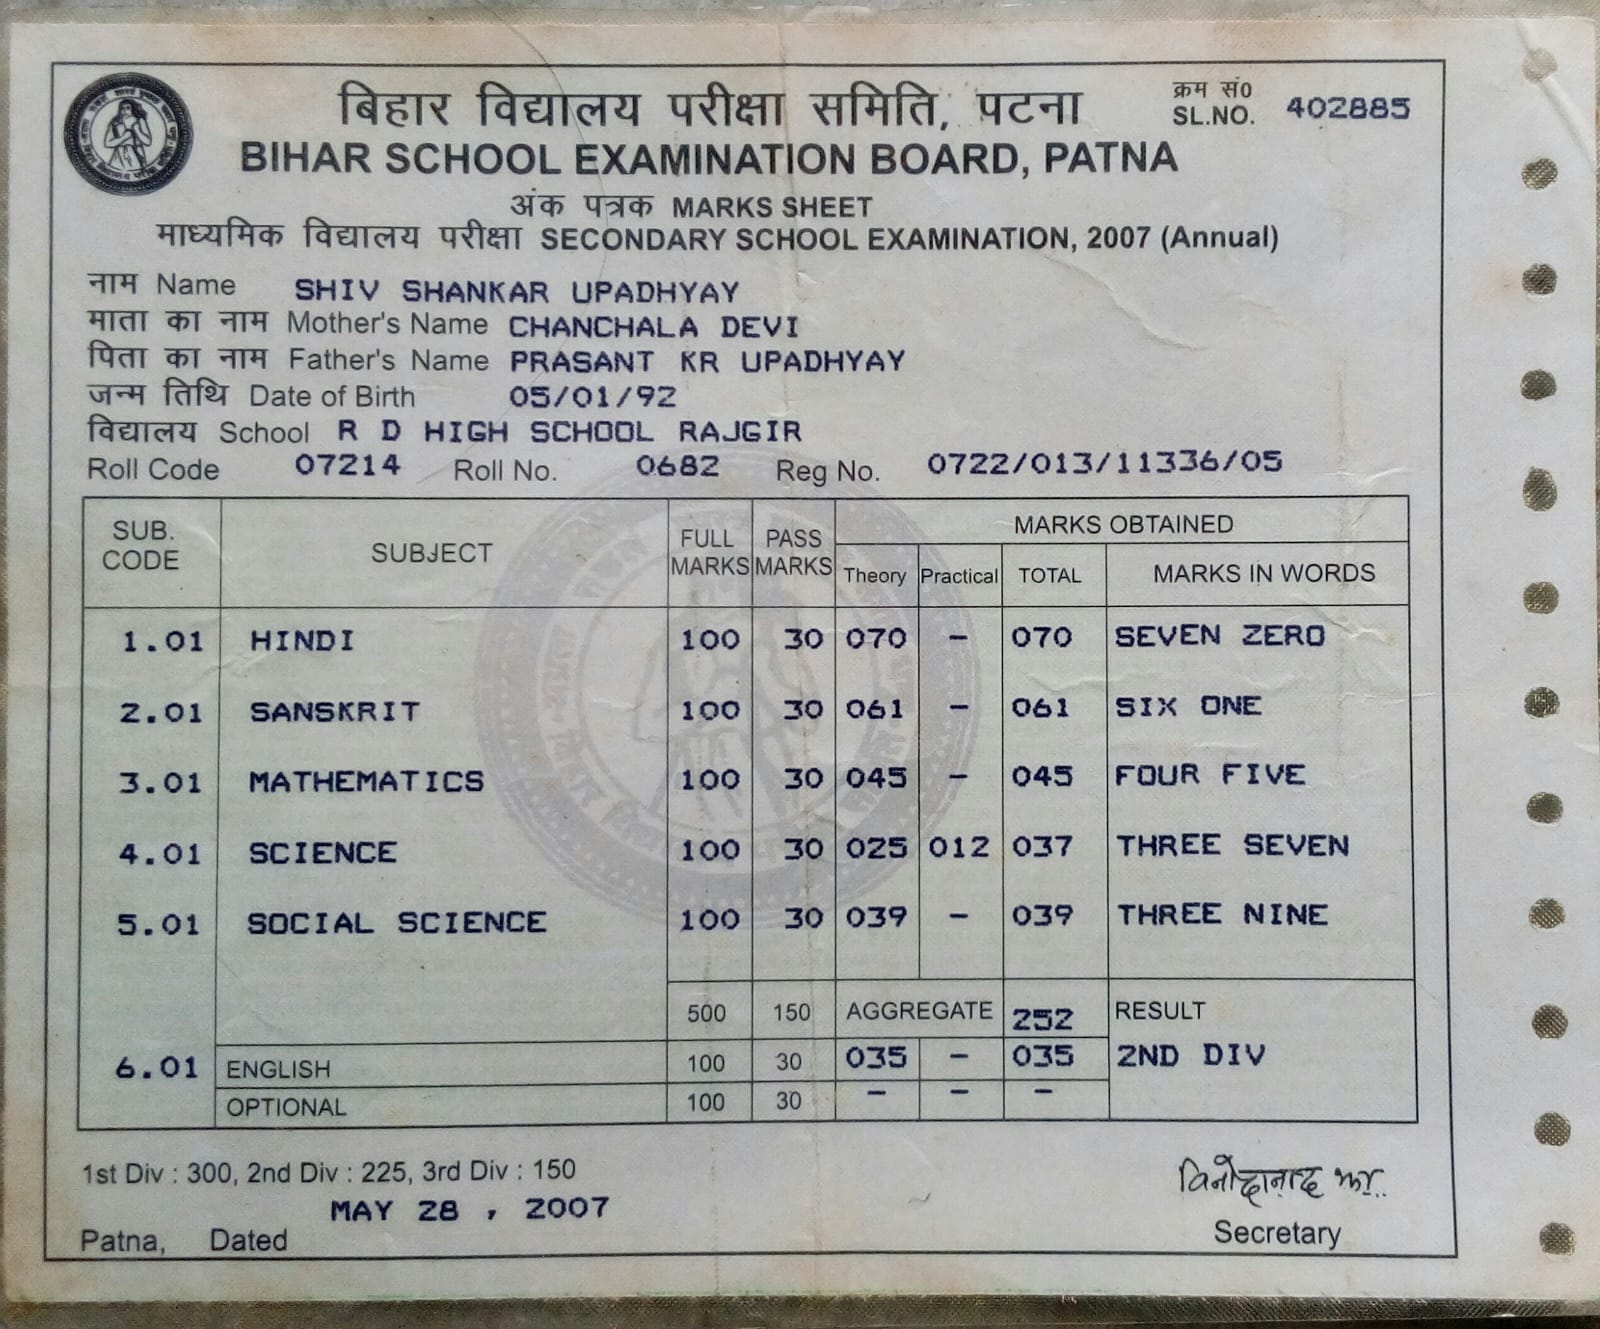 बिहार विद्यालय परीक्षा समिति, पटना
क्रम सं0
SL.NO. 402885
BIHAR SCHOOL EXAMINATION BOARD, PATNA
अंक पत्रक MARKS SHEET
माध्यमिक विद्यालय परीक्षा SECONDARY SCHOOL EXAMINATION, 2007 (Annual)
नाम Name SHIV SHANKAR UPADHYAY
माता का नाम Mother's Name CHANCHALA DEVI
पिता का नाम Father's Name PRASANT KR UPADHYAY
जन्म तिथि Date of Birth 05/01/92
विद्यालय School R D HIGH SCHOOL RAJGIR
Roll Code 07214 Roll No. 0682 Reg No. 0722/013/11336/05
SUB. CODE SUBJECT FULL MARKS PASS MARKS MARKS OBTAINED
Theory Practical TOTAL MARKS IN WORDS
1.01 HINDI 100 30 070 - 070 SEVEN ZERO
2.01 SANSKRIT 100 30 061 - 061 SIX ONE
3.01 MATHEMATICS 100 30 045 - 045 FOUR FIVE
4.01 SCIENCE 100 30 025 012 037 THREE SEVEN
5.01 SOCIAL SCIENCE 100 30 039 - 039 THREE NINE
500 150 AGGREGATE 252 RESULT
6.01 ENGLISH 100 30 035 - 035 2ND DIV
OPTIONAL 100 30 - - -
1st Div : 300, 2nd Div : 225, 3rd Div : 150
MAY 28 , 2007
Patna, Dated
विनोदानन्द झा
Secretary